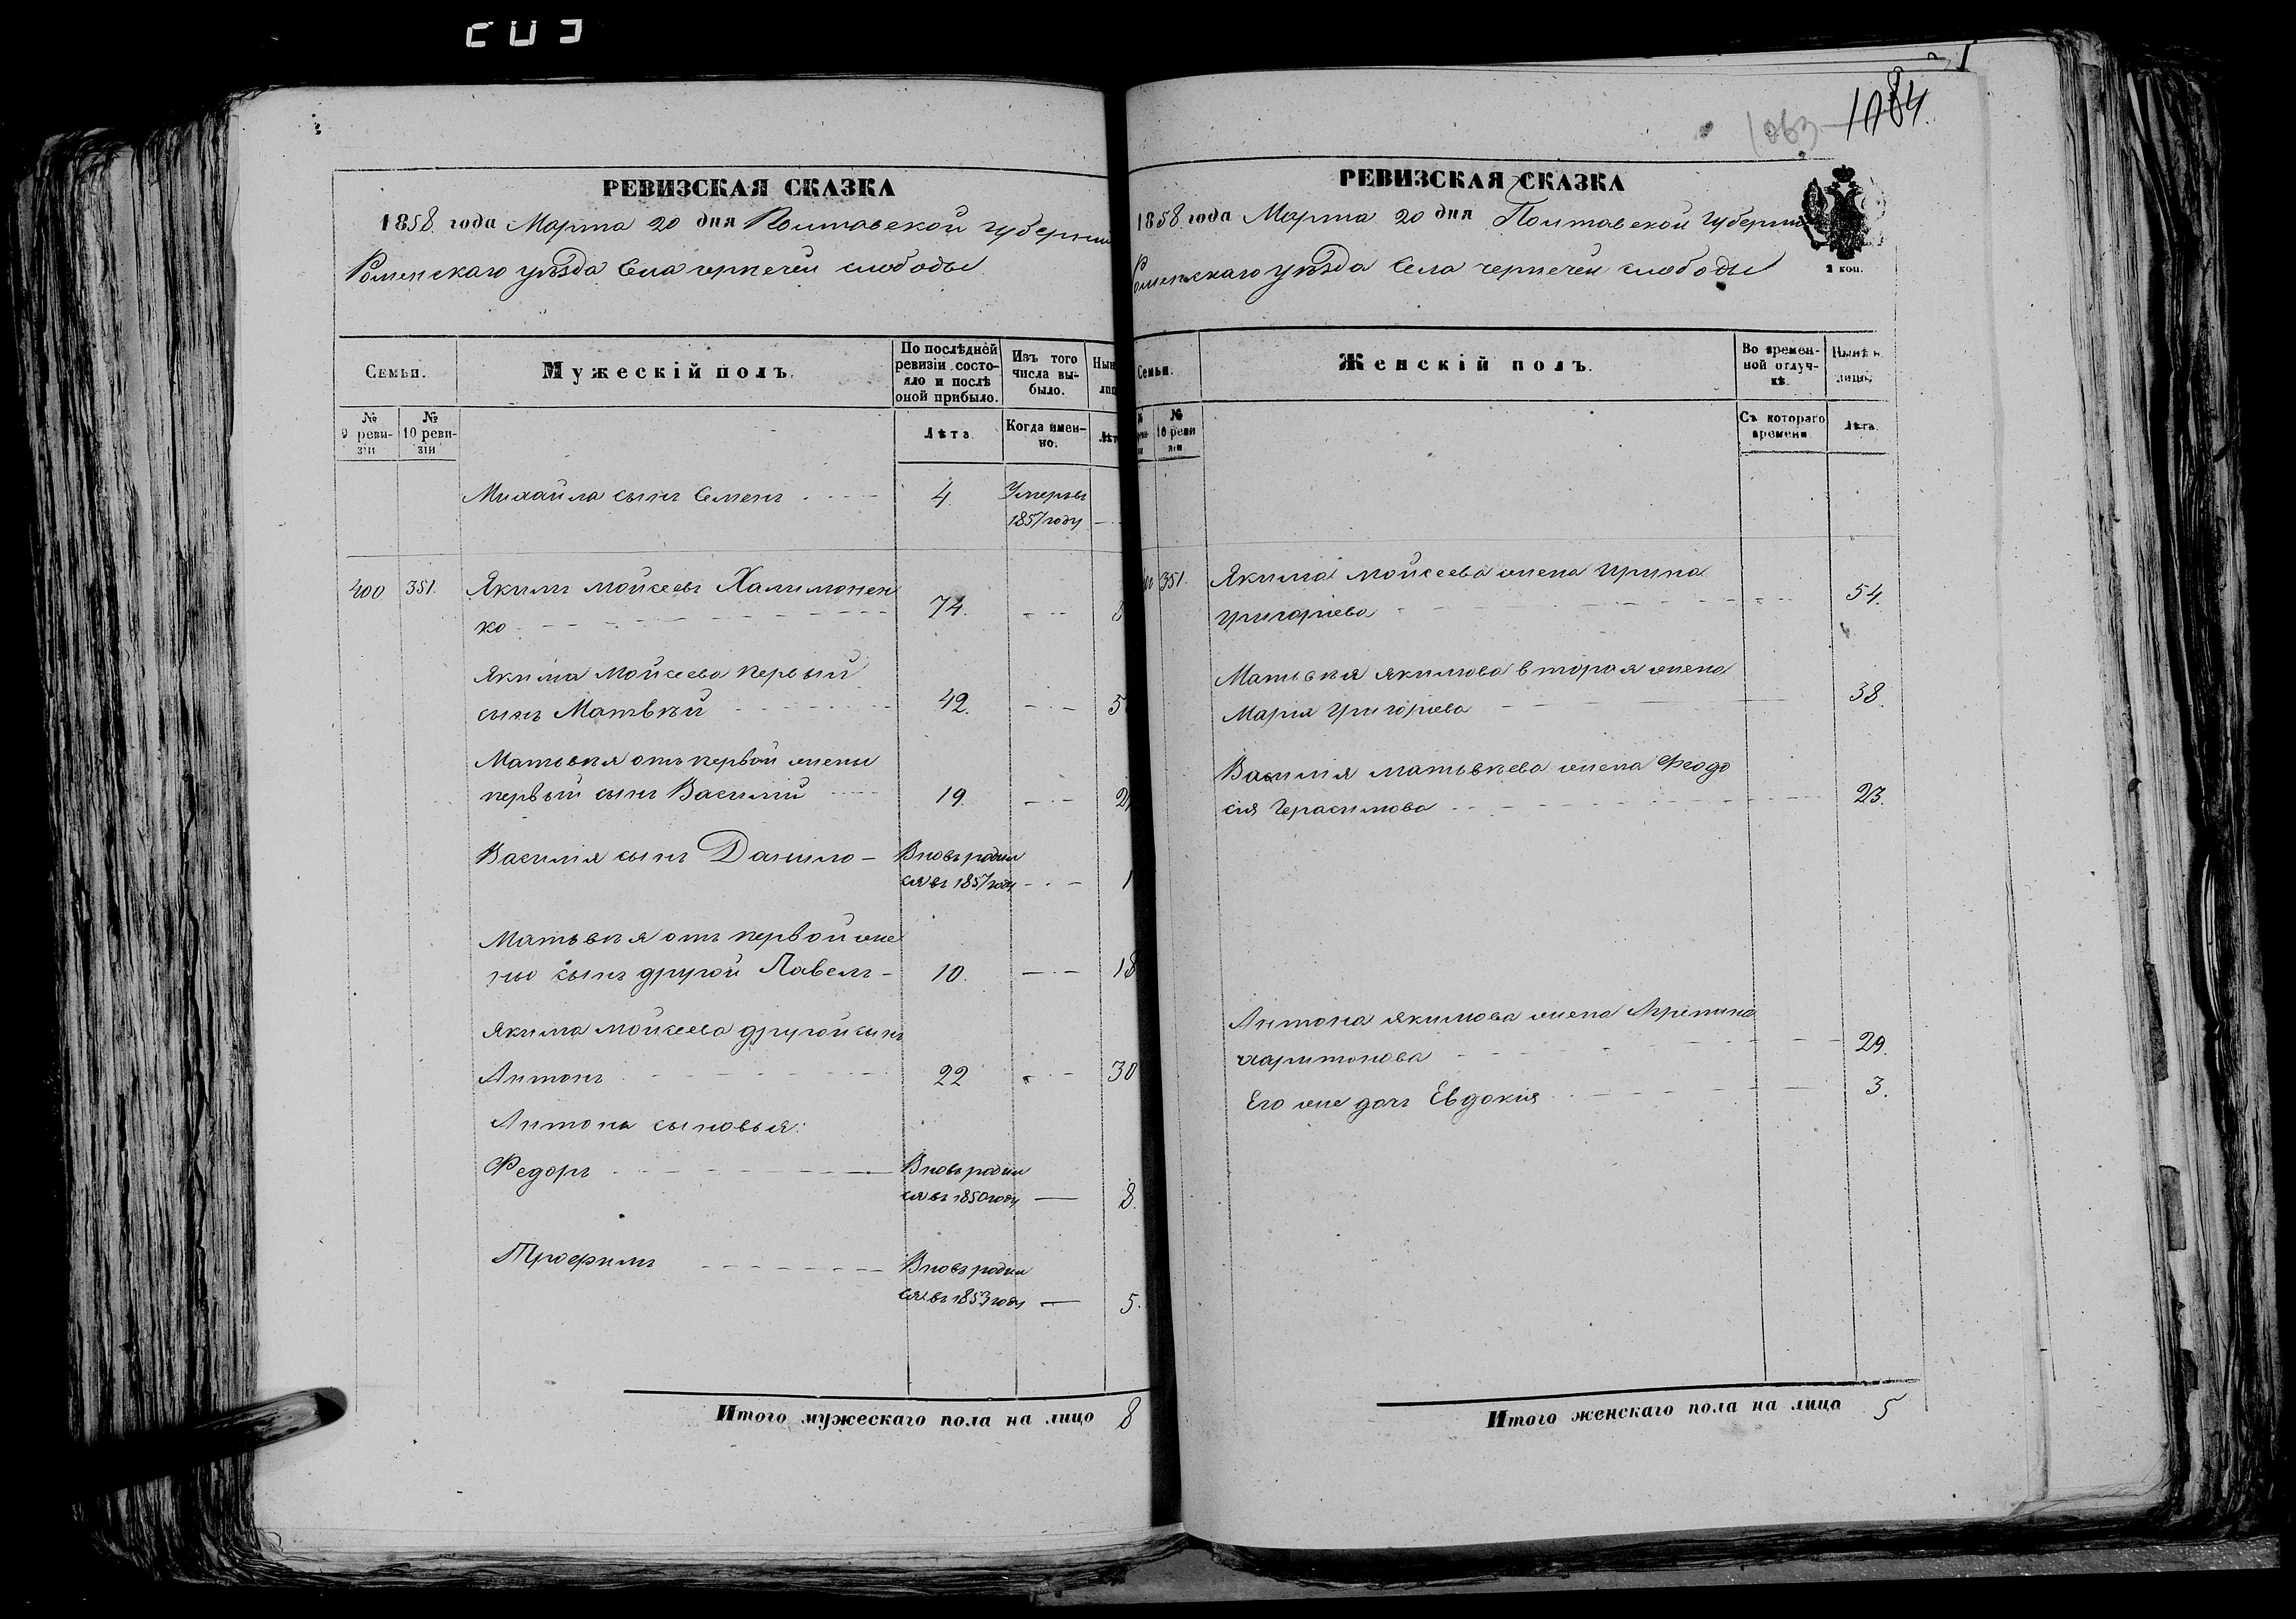 1084.
1063
РЕВИЗСКАЯ СКАЗКА
1858. года Марта 20 дня Полтавской губерніи
Роменскаго уѣзда Села черпечей слободы
Семьи.
Мужескій полъ.
По послѣдней ревизіи состояло и послѣ оной прибыло.
Изъ того числа выбыло.
№ 9 ревизіи
№ 10 ревизіи
Лѣта.
Когда именно.
Михайла сынъ Семенъ 4. Умеръ въ
1857 году
400 351. Якимъ Мойсеевъ Халимонен
ко 74.
Якима Мойсеева первый
сынъ Матвѣй 42.
Матвѣя отъ первой жены
первый сынъ Василій 19.
Василія сынъ Данило Вновь родил
ся въ 1857 году 1
Матвѣя отъ первой же
ны сынъ другой Павелъ 10. 18
Якима Мойсеева другой сынъ
Антонъ 22 30
Антона сыновья:
Федоръ Вновь родил
ся въ 1850 году 8.
Трофимъ Вновь родил
ся въ 1853 году 5.
Итого мужескаго пола на лицо 8
РЕВИЗСКАЯ СКАЗКА
1858. года Марта 20 дня Полтавской губерніи
Роменскаго уѣзда Села черпечей слободы
2 коп.
Семьи.
Женскій полъ.
Во временной отлучкѣ.
Нынѣ на лицо.
№ 10 ревизіи
Съ котораго времени
Лѣта.
351. Якима Мойсеева жена Ирина
Григоріева 54.
Матвѣя Якимова вторая жена
Марія Григоріева 38.
Василія Матвѣева жена Феодо
сія Герасимова 23.
Антона Якимова жена Агрепина
Харитонова 29.
Его же дочь Евдокія 3.
Итого женскаго пола на лицо 5